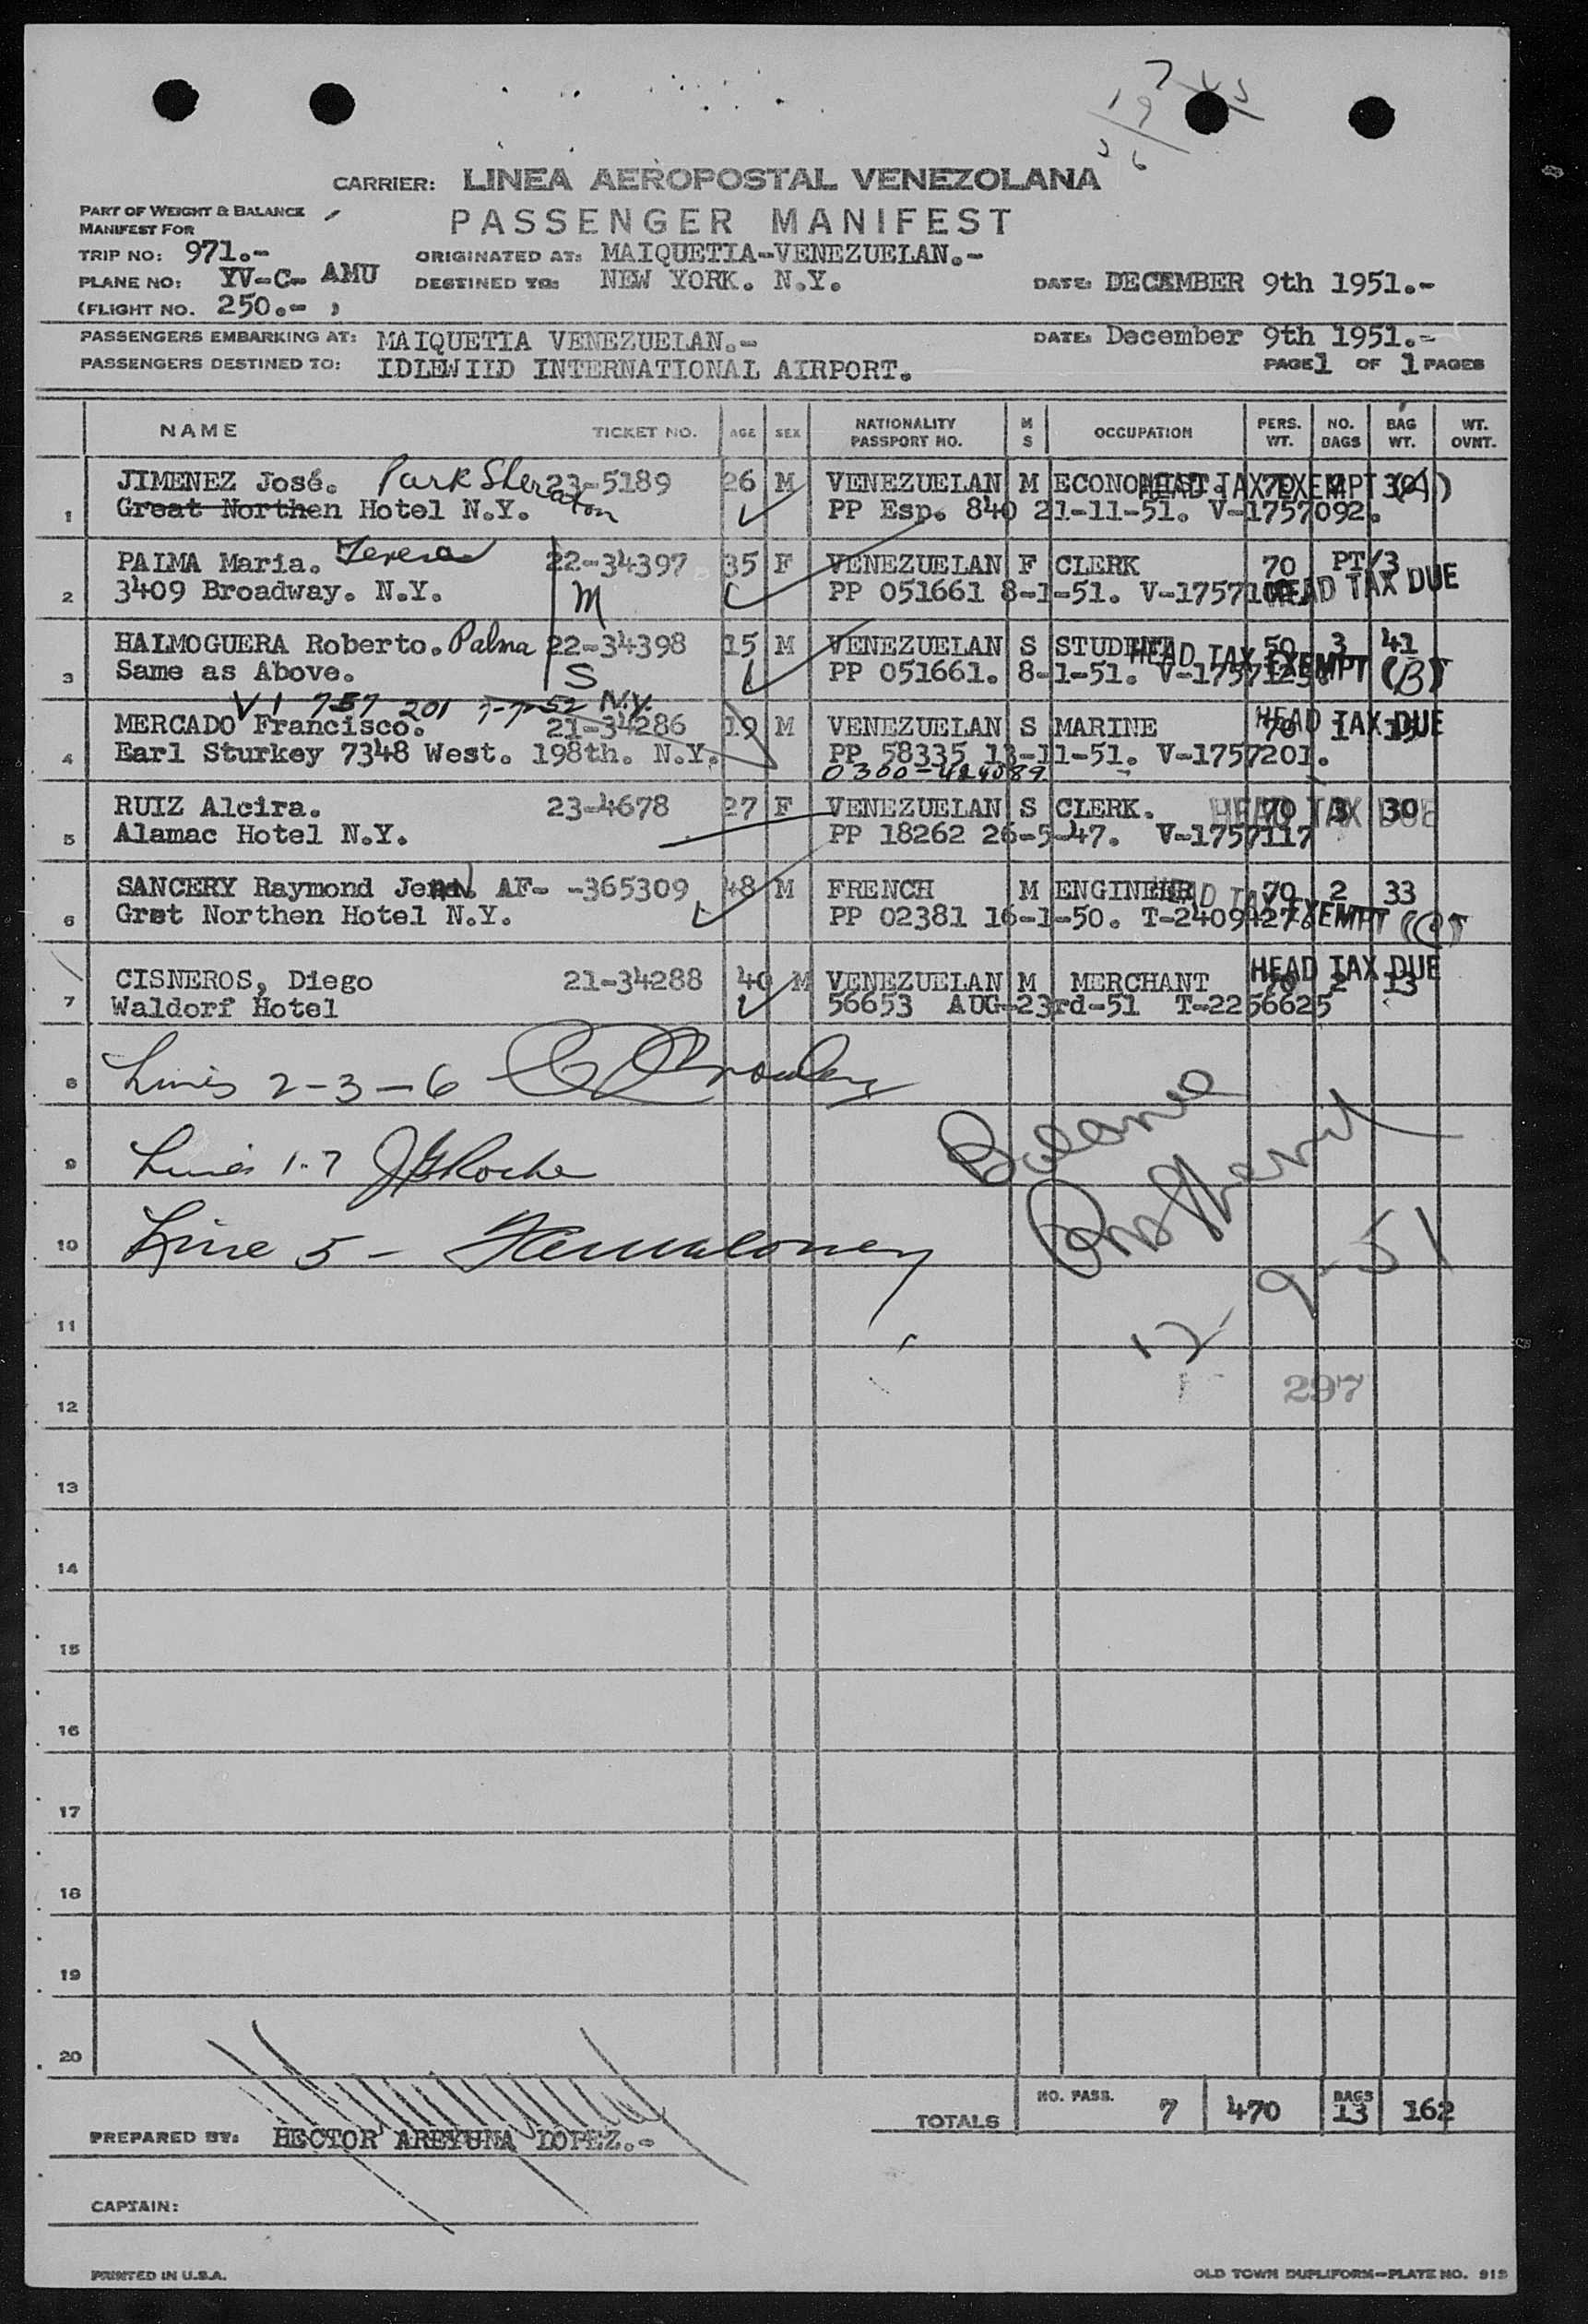 CARRIER: LINEA AEROPOSTAL VENEZOLANA
PART OF WEIGHT & BALANCE
MANIFEST FOR
PASSENGER MANIFEST
TRIP NO: 971.-
ORIGINATED AT: MAIQUETIA-VENEZUELAN.-
PLANE NO: YV-C- AMU
DESTINED TO: NEW YORK. N.Y.
DATE: DECEMBER 9th 1951.-
(FLIGHT NO. 250.- )
PASSENGERS EMBARKING AT: MAIQUETIA VENEZUELAN.-
DATE: December 9th 1951.-
PASSENGERS DESTINED TO: IDLEWIID INTERNATIONAL AIRPORT.
PAGE 1 OF 1 PAGES
NAME TICKET NO. AGE SEX NATIONALITY PASSPORT NO. M S OCCUPATION PERS. WT. NO. BAGS BAG WT. WT. OVNT.
JIMENEZ José. Park Sheraton 23-5189 26 M VENEZUELAN M ECONOMIST. 70 HEAD TAX EXEMPT (A)
1 Great Northen Hotel N.Y. PP Esp. 840 21-11-51. V-1757092.
PALMA Maria. Teresa 22-34397 35 F VENEZUELAN F CLERK 70 PT/3
2 3409 Broadway. N.Y. M PP 051661 8-1-51. HEAD TAX DUE
HALMOGUERA Roberto. Palma 22-34398 15 M VENEZUELAN S STUDENT 50 3 41
3 Same as Above. S PP 051661. 8-1-51. HEAD TAX EXEMPT (B)
V 1 757 201 7-7-52 N.Y.
MERCADO Francisco. 21-34286 19 M VENEZUELAN S MARINE 70 1 15 HEAD TAX DUE
4 Earl Sturkey 7348 West. 198th. N.Y. PP 58335 13-11-51. V-1757201.
0300-424089
RUIZ Alcira. 23-4678 27 F VENEZUELAN S CLERK. 70 3 30 HEAD TAX DUE
5 Alamac Hotel N.Y. PP 18262 26-5-47. V-1757117
SANCERY Raymond AF- -365309 48 M FRENCH M ENGINEER 70 2 33
6 Grat Northen Hotel N.Y. PP 02381 16-1-50. T-2409427. HEAD TAX EXEMPT
CISNEROS, Diego 21-34288 40 M VENEZUELAN M MERCHANT 70 2 13 HEAD TAX DUE
7 Waldorf Hotel 56653 AUG-23rd-51 T-2256625
8 Lines 2-3-6
9 Lines 1-7 Roche
Balance
10 Line 5 -
12-9-51
11
12 297
13
14
15
16
17
18
19
20
TOTALS NO. PASS. 7 470 BAGS 13 162
PREPARED BY: HECTOR AREYUNA LOPEZ.-
CAPTAIN:
PRINTED IN U.S.A.
OLD TOWN DUPLIFORM-PLATE NO. 919